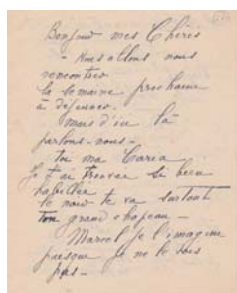 Bonjour mes Chéris
- Nous allons nous
rencontrer
la semaine prochaine
à déjeuner.
Mais d'ici là
parlons-nous -
toi ma Caria
Je t'ai trouvée si bien
habillée
le noir te va surtout
ton grand chapeau -
Marcel je l'imagine
puisque je ne le vois
pas -